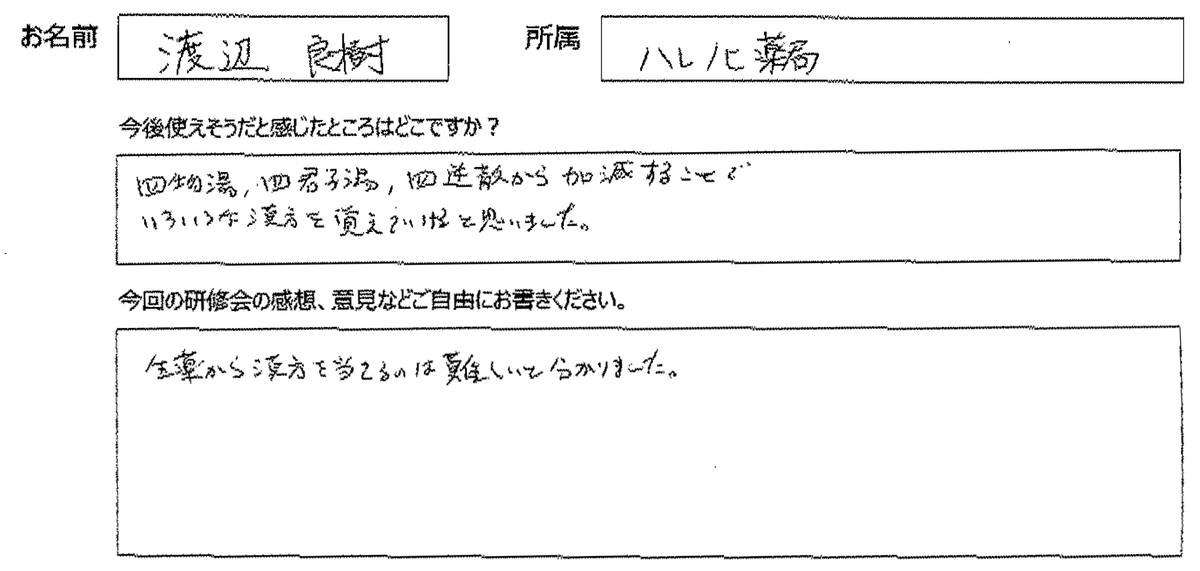 お名前 渡辺 良樹 所属 ハレノヒ薬局
今後使えそうだと感じたところはどこですか？
四物湯，四君子湯，四逆散から加減することで
いろいろな漢方を覚えていけると思いました。
今回の研修会の感想、意見などご自由にお書きください。
生薬から漢方を当てるのは難しいと分かりました。